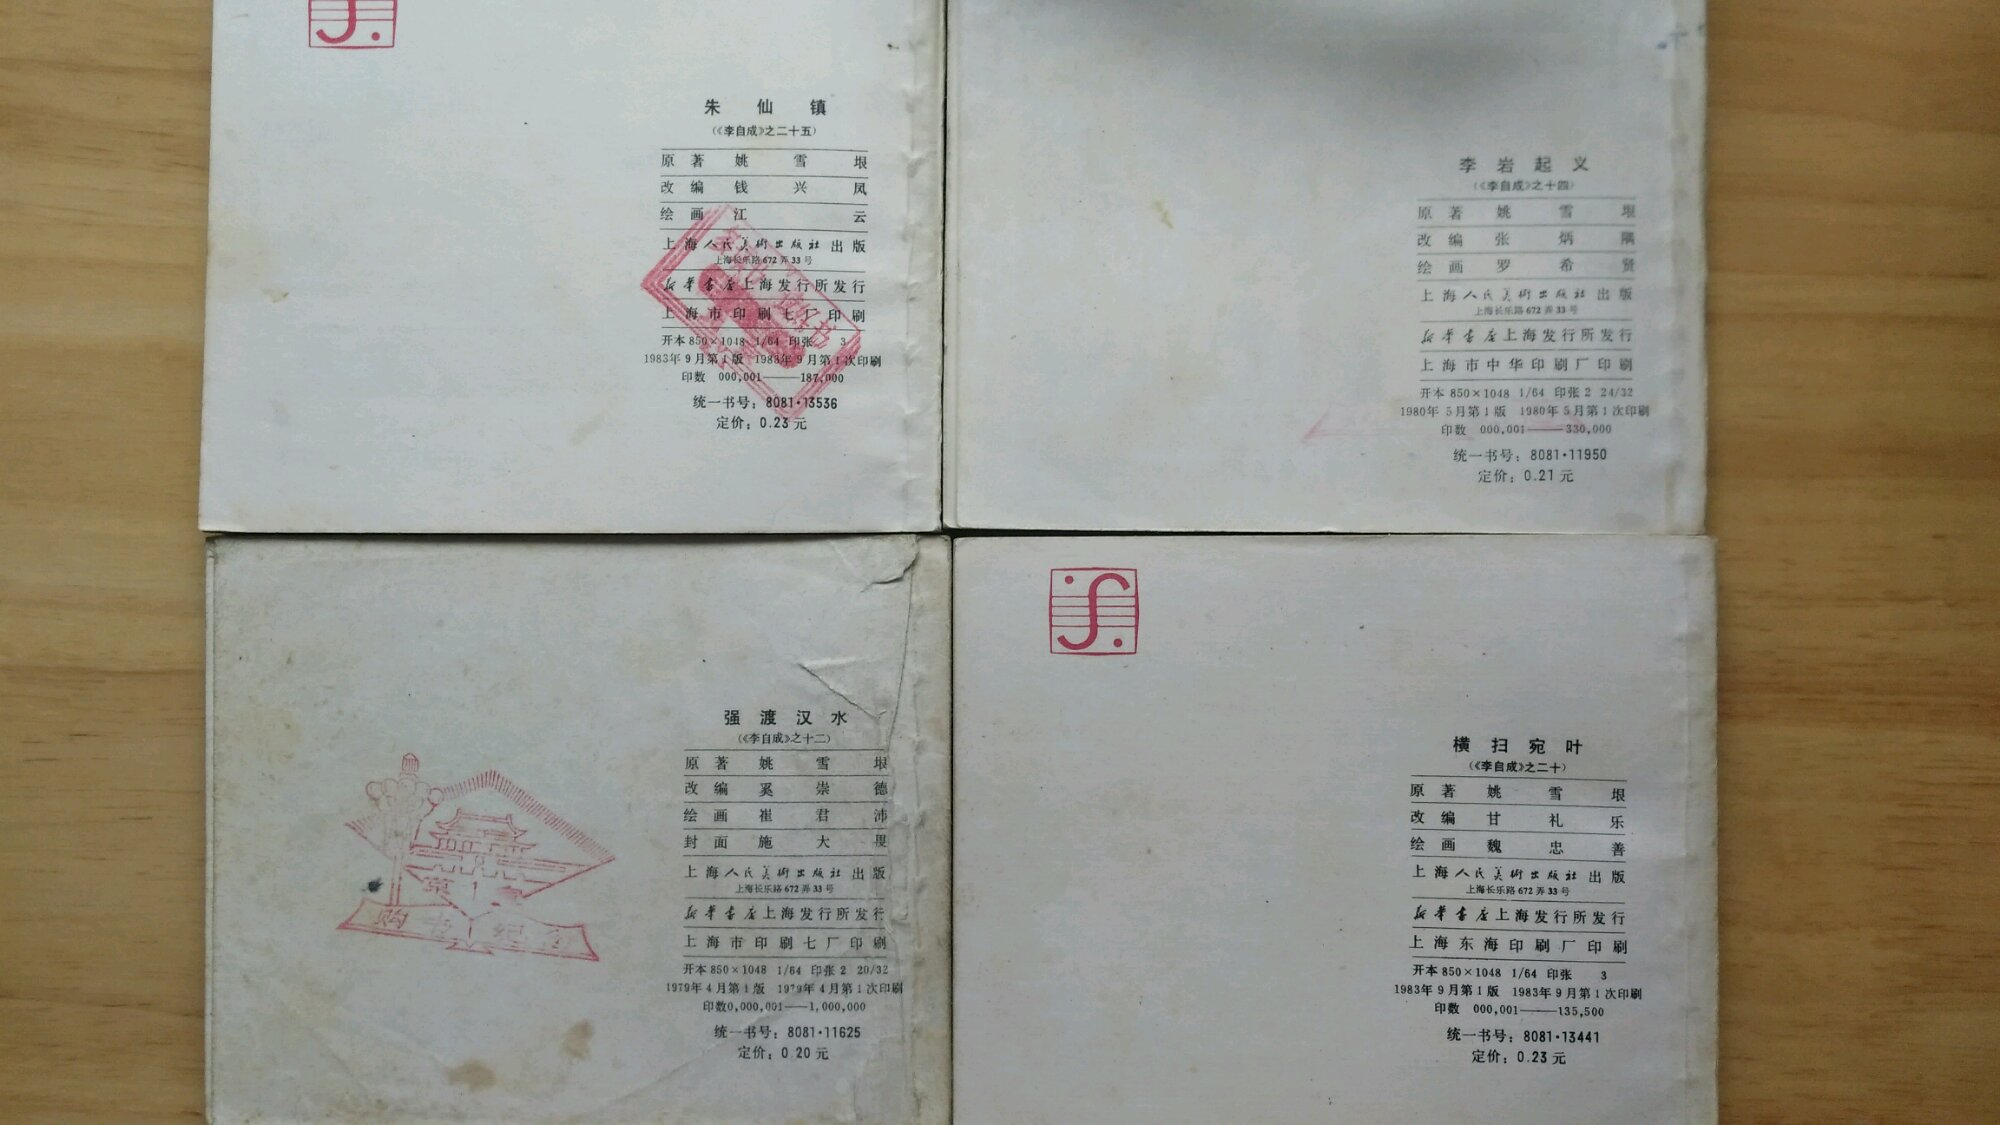 朱仙镇
(《李自成》之二十五)
原著 姚雪垠
改编 钱兴凤
绘画 江云
上海人民美術出版社出版
上海长乐路672弄33号
新华书店上海发行所发行
上海市印刷七厂印刷
开本850×1048 1/64 印张 3
1983年9月第1版 1983年9月第1次印刷
印数 000,001——187,000
统一书号：8081·13536
定价：0.23元
李岩起义
(《李自成》之十四)
原著 姚雪垠
改编 张炳隅
绘画 罗希贤
上海人民美術出版社出版
上海长乐路672弄33号
新华书店上海发行所发行
上海市中华印刷厂印刷
开本850×1048 1/64 印张2 24/32
1980年5月第1版 1980年5月第1次印刷
印数 000,001——330,000
统一书号：8081·11950
定价：0.21元
强渡汉水
(《李自成》之十二)
原著 姚雪垠
改编 奚崇德
绘画 崔君沛
封面 施大畏
上海人民美術出版社出版
上海长乐路672弄33号
新华书店上海发行所发行
上海市印刷七厂印刷
开本850×1048 1/64 印张2 20/32
1979年4月第1版 1979年4月第1次印刷
印数0,000,001——1,000,000
统一书号：8081·11625
定价：0.20元
购书纪念
横扫宛叶
(《李自成》之二十)
原著 姚雪垠
改编 甘礼乐
绘画 魏忠善
上海人民美術出版社出版
上海长乐路672弄33号
新华书店上海发行所发行
上海东海印刷厂印刷
开本850×1048 1/64 印张 3
1983年9月第1版 1983年9月第1次印刷
印数 000,001——135,500
统一书号：8081·13441
定价：0.23元